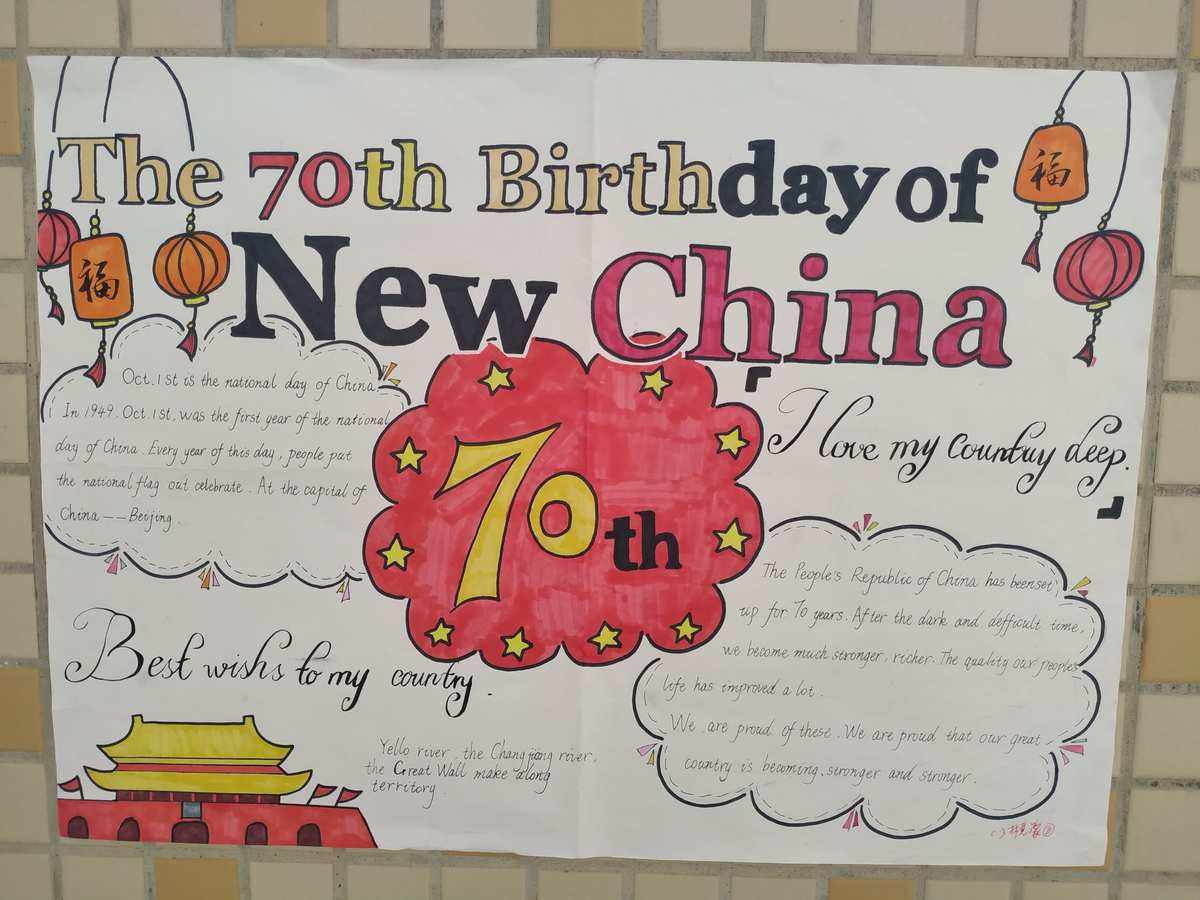 The 70th Birthday of
New China
福
福
Oct.1st is the national day of China
In 1949. Oct.1st, was the first year of the national
day of China. Every year of this day, people put
the national flag out celebrate. At the capital of
China——Beijing.
70th
I love my country deep.
The People's Republic of China has beenset
up for 70 years. After the dark and defficult time,
we become much stronger, richer. The quality our peoples
life has improved a lot.
We are proud of these. We are proud that our great
country is becoming stronger and stronger.
Best wishs to my country.
Yello river, the Changjiang river,
the Great Wall make along
territory.